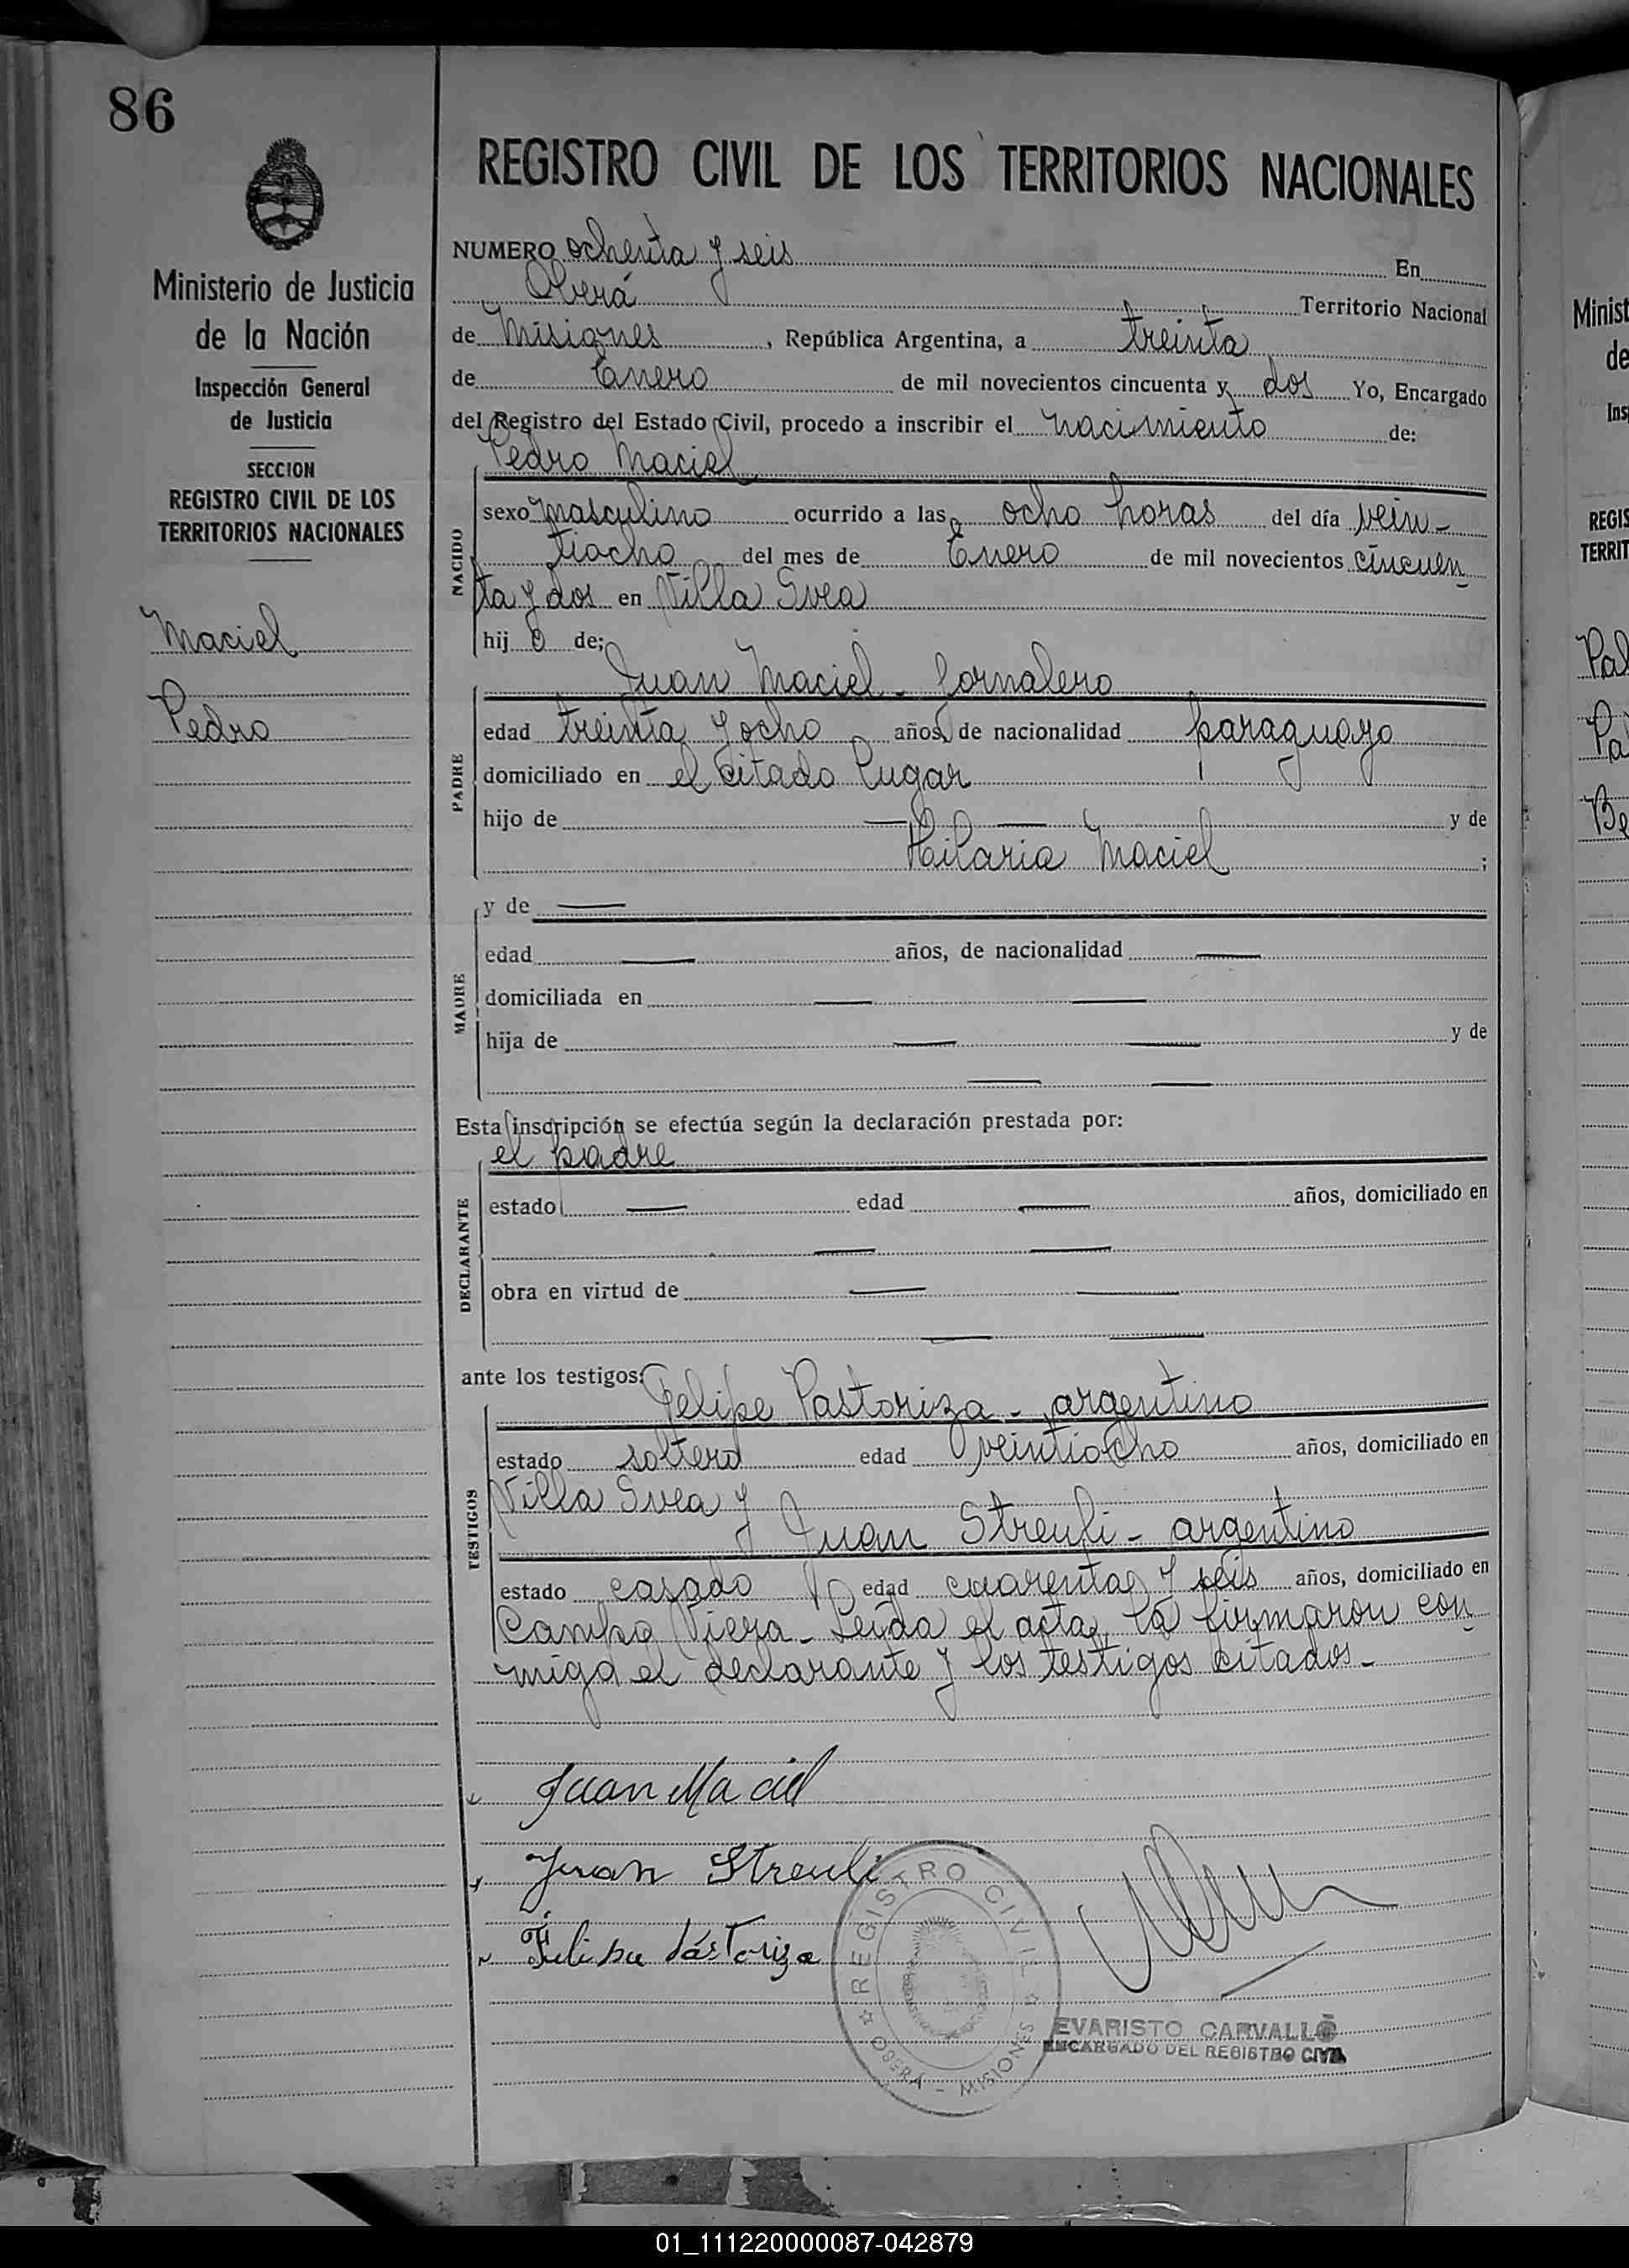 86
REGISTRO CIVIL DE LOS TERRITORIOS NACIONALES
Ministerio de Justicia
de la Nación
Inspección General
de Justicia
SECCION
REGISTRO CIVIL DE LOS
TERRITORIOS NACIONALES
Maciel
Pedro
NUMERO ochenta y seis En
Oberá Territorio Nacional
de Misiones, República Argentina, a treinta
de Enero de mil novecientos cincuenta y dos Yo, Encargado
del Registro del Estado Civil, procedo a inscribir el nacimiento de:
Pedro Maciel
NACIDO
sexo masculino ocurrido a las ocho horas del día vein-
tiocho del mes de Enero de mil novecientos cincuen
ta y dos en Villa Svea
hijo de;
Juan Maciel - Jornalero
PADRE
edad treinta y ocho años, de nacionalidad paraguayo
domiciliado en el citado lugar
hijo de — — y de
Hilaria Maciel ;
MADRE
y de —
edad — años, de nacionalidad —
domiciliada en — —
hija de — — y de
— —
Esta inscripción se efectúa según la declaración prestada por:
el padre
DECLARANTE
estado — edad — años, domiciliado en
— —
obra en virtud de — —
— —
ante los testigos:
Felipe Pastoriza - argentino
TESTIGOS
estado soltero edad veintiocho años, domiciliado en
Villa Svea y
Juan Streuli - argentino
estado casado edad cuarenta y seis años, domiciliado en
Campo Viera - Leída el acta, la firmaron con
migo el declarante y los testigos citados.-
Juan Maciel
Juan Streuli
Felipe Pástoriza
REGISTRO CIVIL
OBERA - MISIONES
EVARISTO CARVALLO
ENCARGADO DEL REGISTRO CIVIL
Minist
de
Ins
REGIS
TERRIT
Pal
Pa
Be
01_111220000087-042879